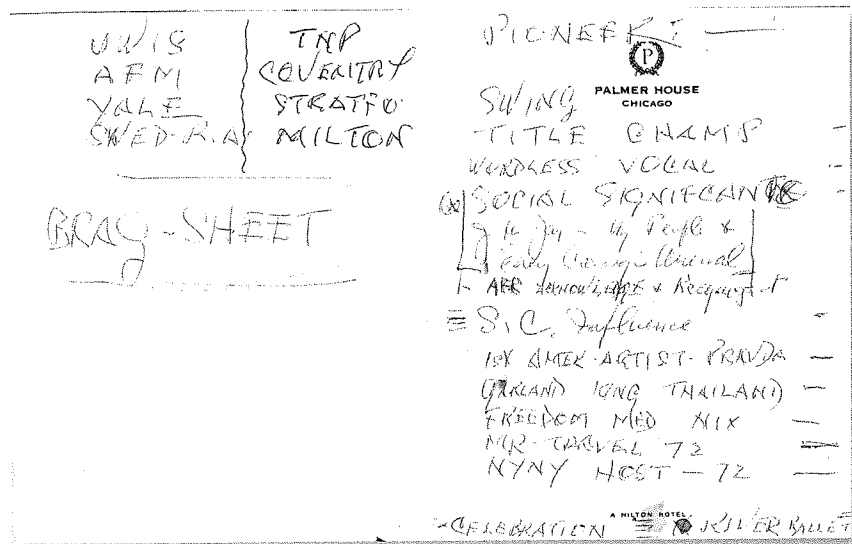 U WIS
AFM
YALE
SWED. R. A.
TNP
COVENTRY
STRATFO
MILTON
BRAG-SHEET
PIONEER:
P
PALMER HOUSE
CHICAGO
SWING
TITLE CHAMP
WORDLESS VOCAL
SOCIAL SIGNIFCAN
My People &
AFR ACKNOWLEDGE &
S.C. Influence
1ST AMER-ARTIST-PRAVDA
GARLAND KING THAILAND
FREEDOM MED NIX
MR-TRAVEL 72
NYNY HOST - 72
A HILTON HOTEL
-CELEBRATION RIVER BALLET